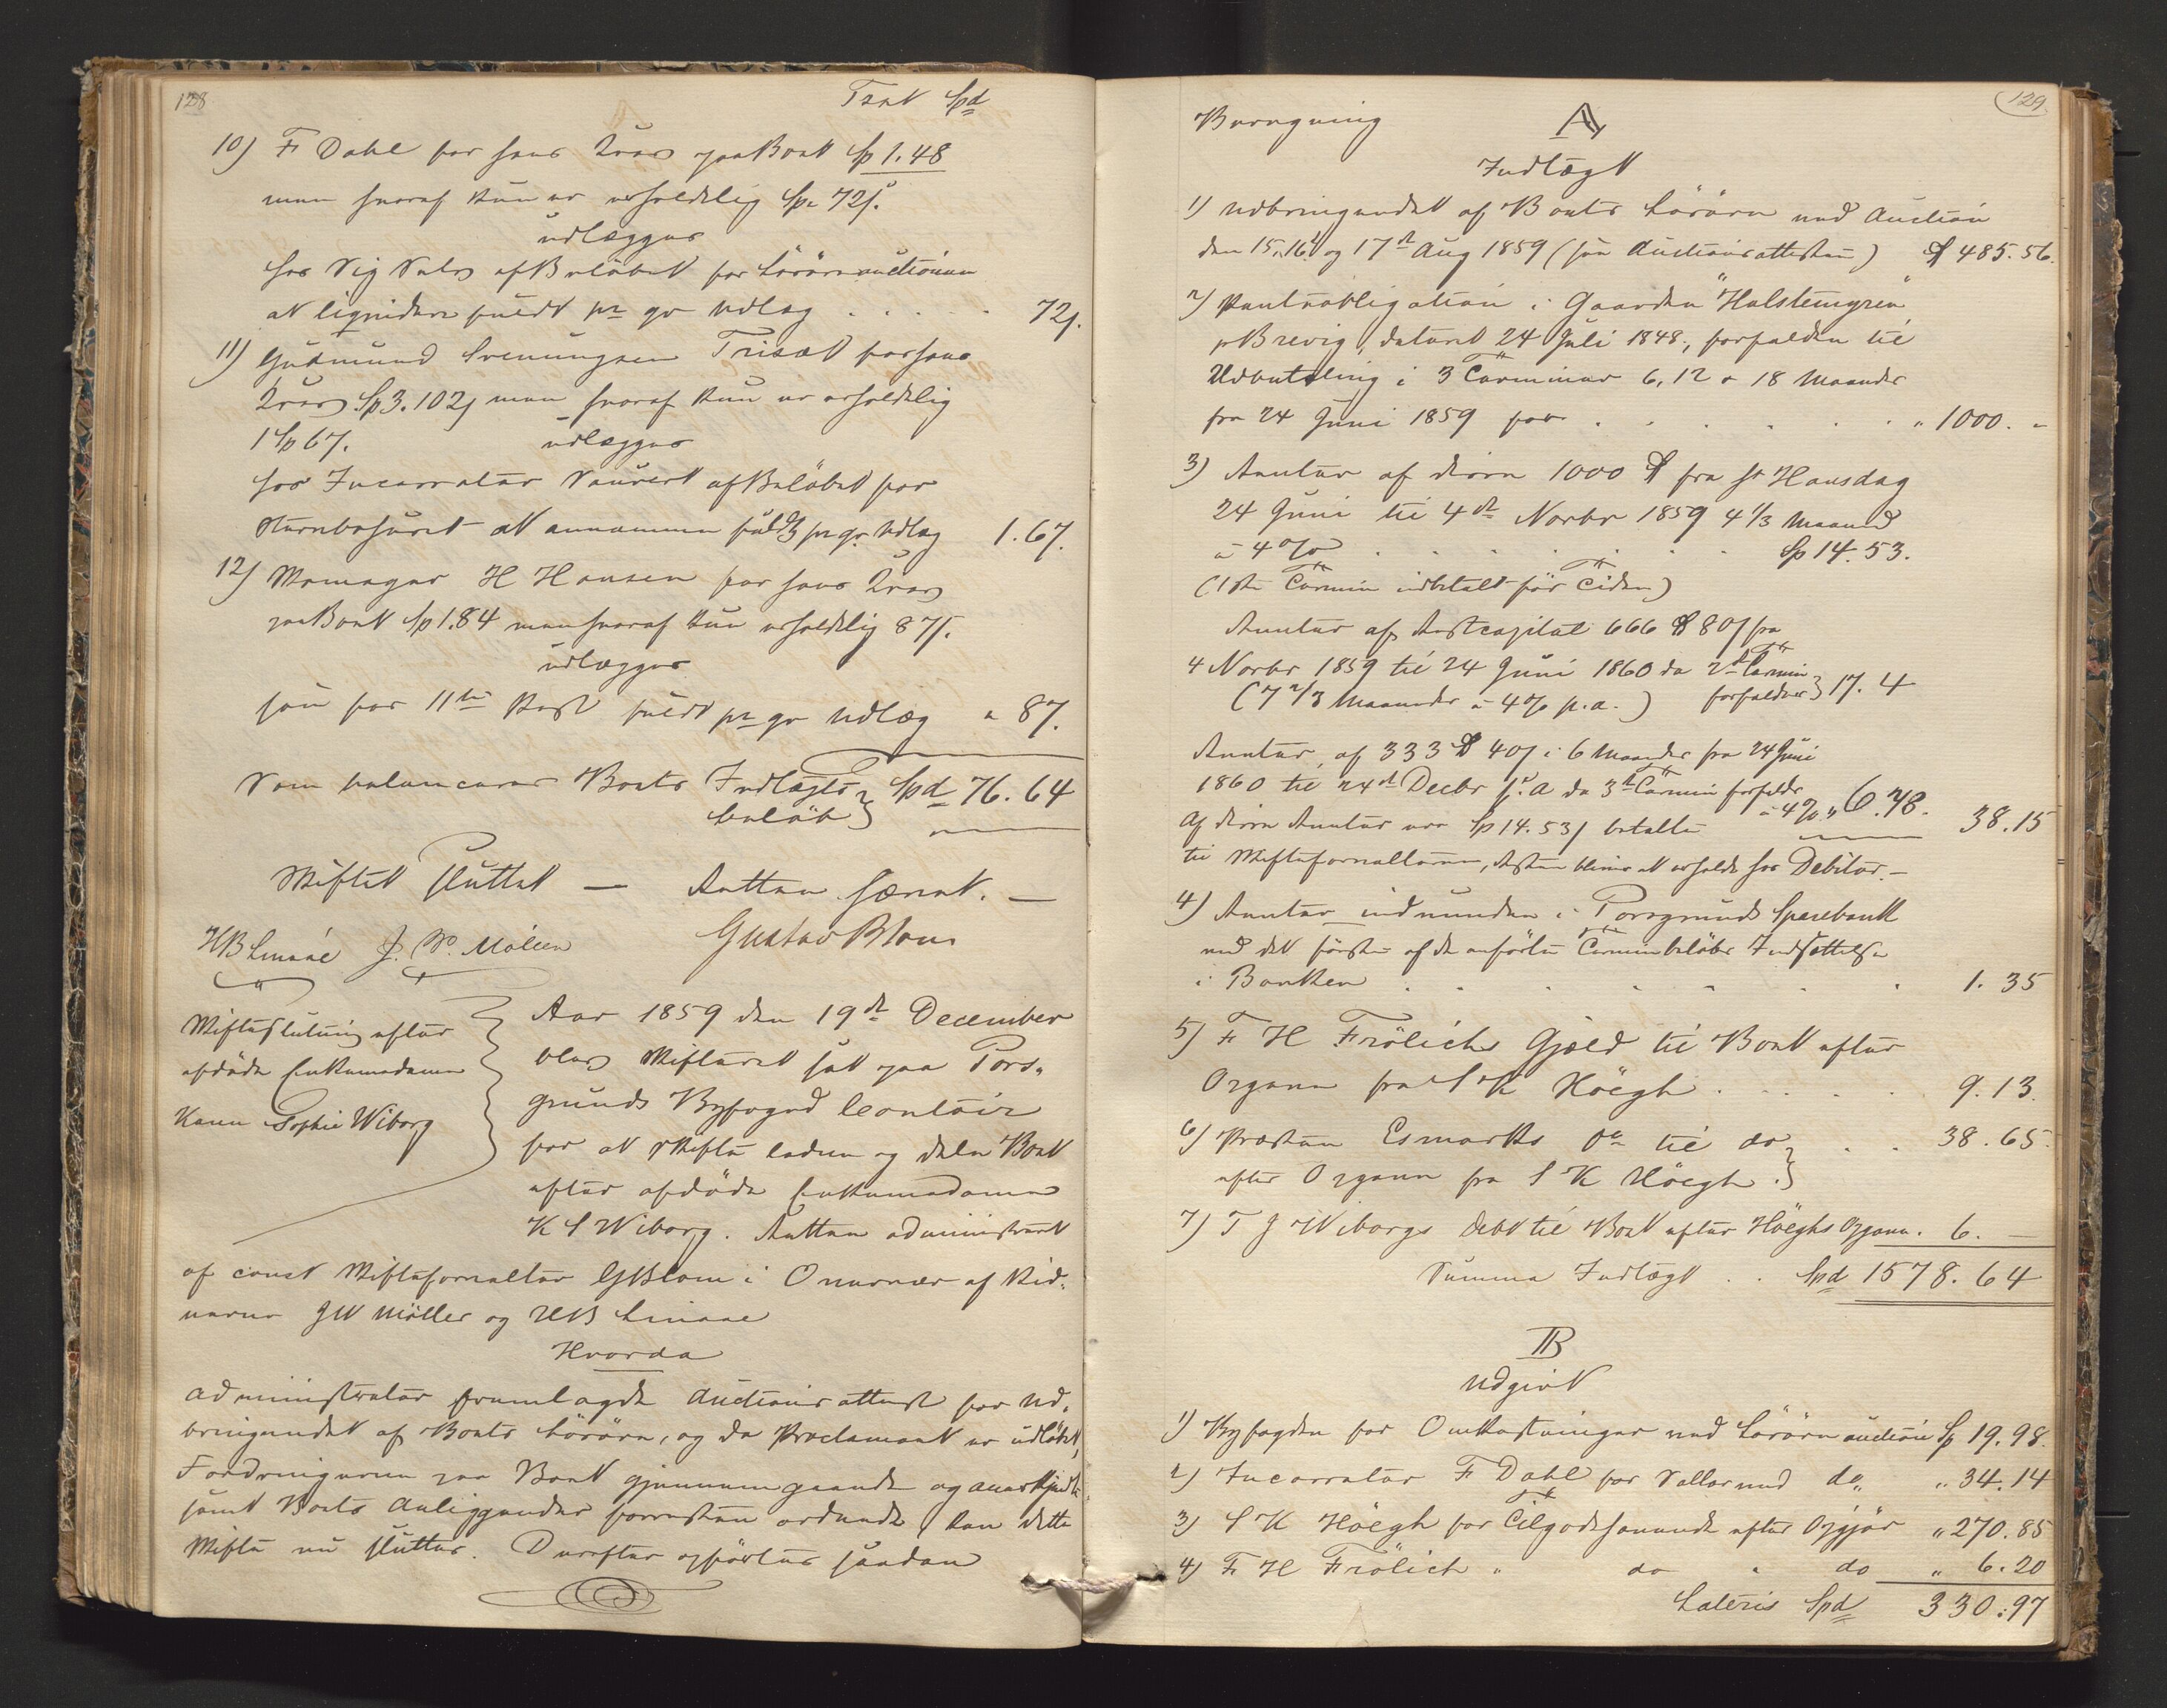 128
Tsnt Spd
10) F Dahl for hans Krav paa Boet Sp 1.48
men hvoraf kun er erholdelig Sp " 72 s.
udlægges
hos Sig Selv af Beløbet for Lösöreauctionen
at liqvidere fuldt pr qv Udlæg . . . . 72 s.
11) Gudmund Svenungsen Trisæt for hans
Krav Sp 3.102 s men hvoraf kun er erholdelig
1 Sp 67. udlægges
hos Incassator Saurert af Beløbet for
Sturvbohuset at annamme fuldt pr qv. Udlæg 1.67.
12) Skomager H Hansen for hans Krav
paa Boet Sp 1.84 men hvoraf kun erholdelig 87 s.
udlægges
som for 11te Post fuldt pr qv Udlæg " 87.
Som balancerer Boets Indtægts
beløb Spd 76.64
Skiftet sluttet — Retten hævet. —
HB Linaae J. W. Möller Gustav Blom
Skifteslutning efter
afdöde Enkemadame
Karen Sophie Wiborg
Aar 1859 den 19de December
blev Skifteret sat paa Pors-
grunds Byfoged Contoir
for at skifte ladne og dele Boet
efter afdöde Enkemadame
K S Wiborg. Retten administreret
af const Skifteforvalter G Blom i Overvær af Vid-
nerne J W Möller og HB Linaae
Hvorda
Administrator fremlagde Auctionsattest for Ud-
bringendet af Boets Lösöre, og da Proclamaet er udløbet,
Fordringerne paa Boet gjennemgaaede og anerkjendte
samt Boets Anliggender forresten ordnede, kan dette
Skifte nu sluttes. Derefter opførtes saadan
129
Beregning
A
Indtægt
1) Udbringendet af Boets Lösöre ved Auction
den 15, 16 og 17de Aug 1859 (see Auctionsattesten) Spd 485.56.
2) Panteobligation i Gaarden "Halstensgreen"
p Brevig, dateret 24 Juli 1848, forfalden til
Udbetaling i 3 Terminer 6, 12 & 18 Maaneder
fra 24 Juni 1859 for . . . . . " 1000. "
3) Renter af disse 1000 Spd fra St Hansdag
24 Juni til 4de Novbr 1859 4 1/3 Maaned
a 4 % . . . . . . Sp 14.53.
(1ste Termin indbetalt før Tiden)
Renter af Restcapital 666 Spd 80 s fra
4 Novbr 1859 til 24 Juni 1860 da 2den Termin
(7 2/3 Maaneder a 4 % p.a.) forfalder 17.4
Renter af 333 Spd 40 s i 6 Maaneder fra 24 Juni
1860 til 24de Decbr s. A da 3de Termin forfalder
a 4 % " 6.78. 38.15
Af disse Renter ere Sp 14.53 s betalte
til Skifteforvalteren, Resten bliver at erholde hos Debitor. —
4) Renter indvunden i Porsgrunds Sparebank
ved det förste af de anførte Terminbeløbs Indsættelse
i Banken . . . . . . . 1.35
5) F H Frölichs Gjæld til Boet efter
Opgave fra S K Höegh . . . . 9.13.
6) Præsten Esmarks do til do . . 38.65.
efter Opgave fra S K Höegh.
7) T J Wiborgs Debt til Boet efter Höeghs Opgave. 6. —
Summa Indtægt . . Spd 1578.64
B
Udgivt
1) Byfogden for Omkostninger ved Lösöreauction Sp 19.98.
2) Incassator F Dahl for Sallær ved do " " 34.14
3) S K Höegh for Tilgodehavende efter Opgjör " 270.85
4) F H Frölich " do " do " 6.20
Lateris Spd 330:97